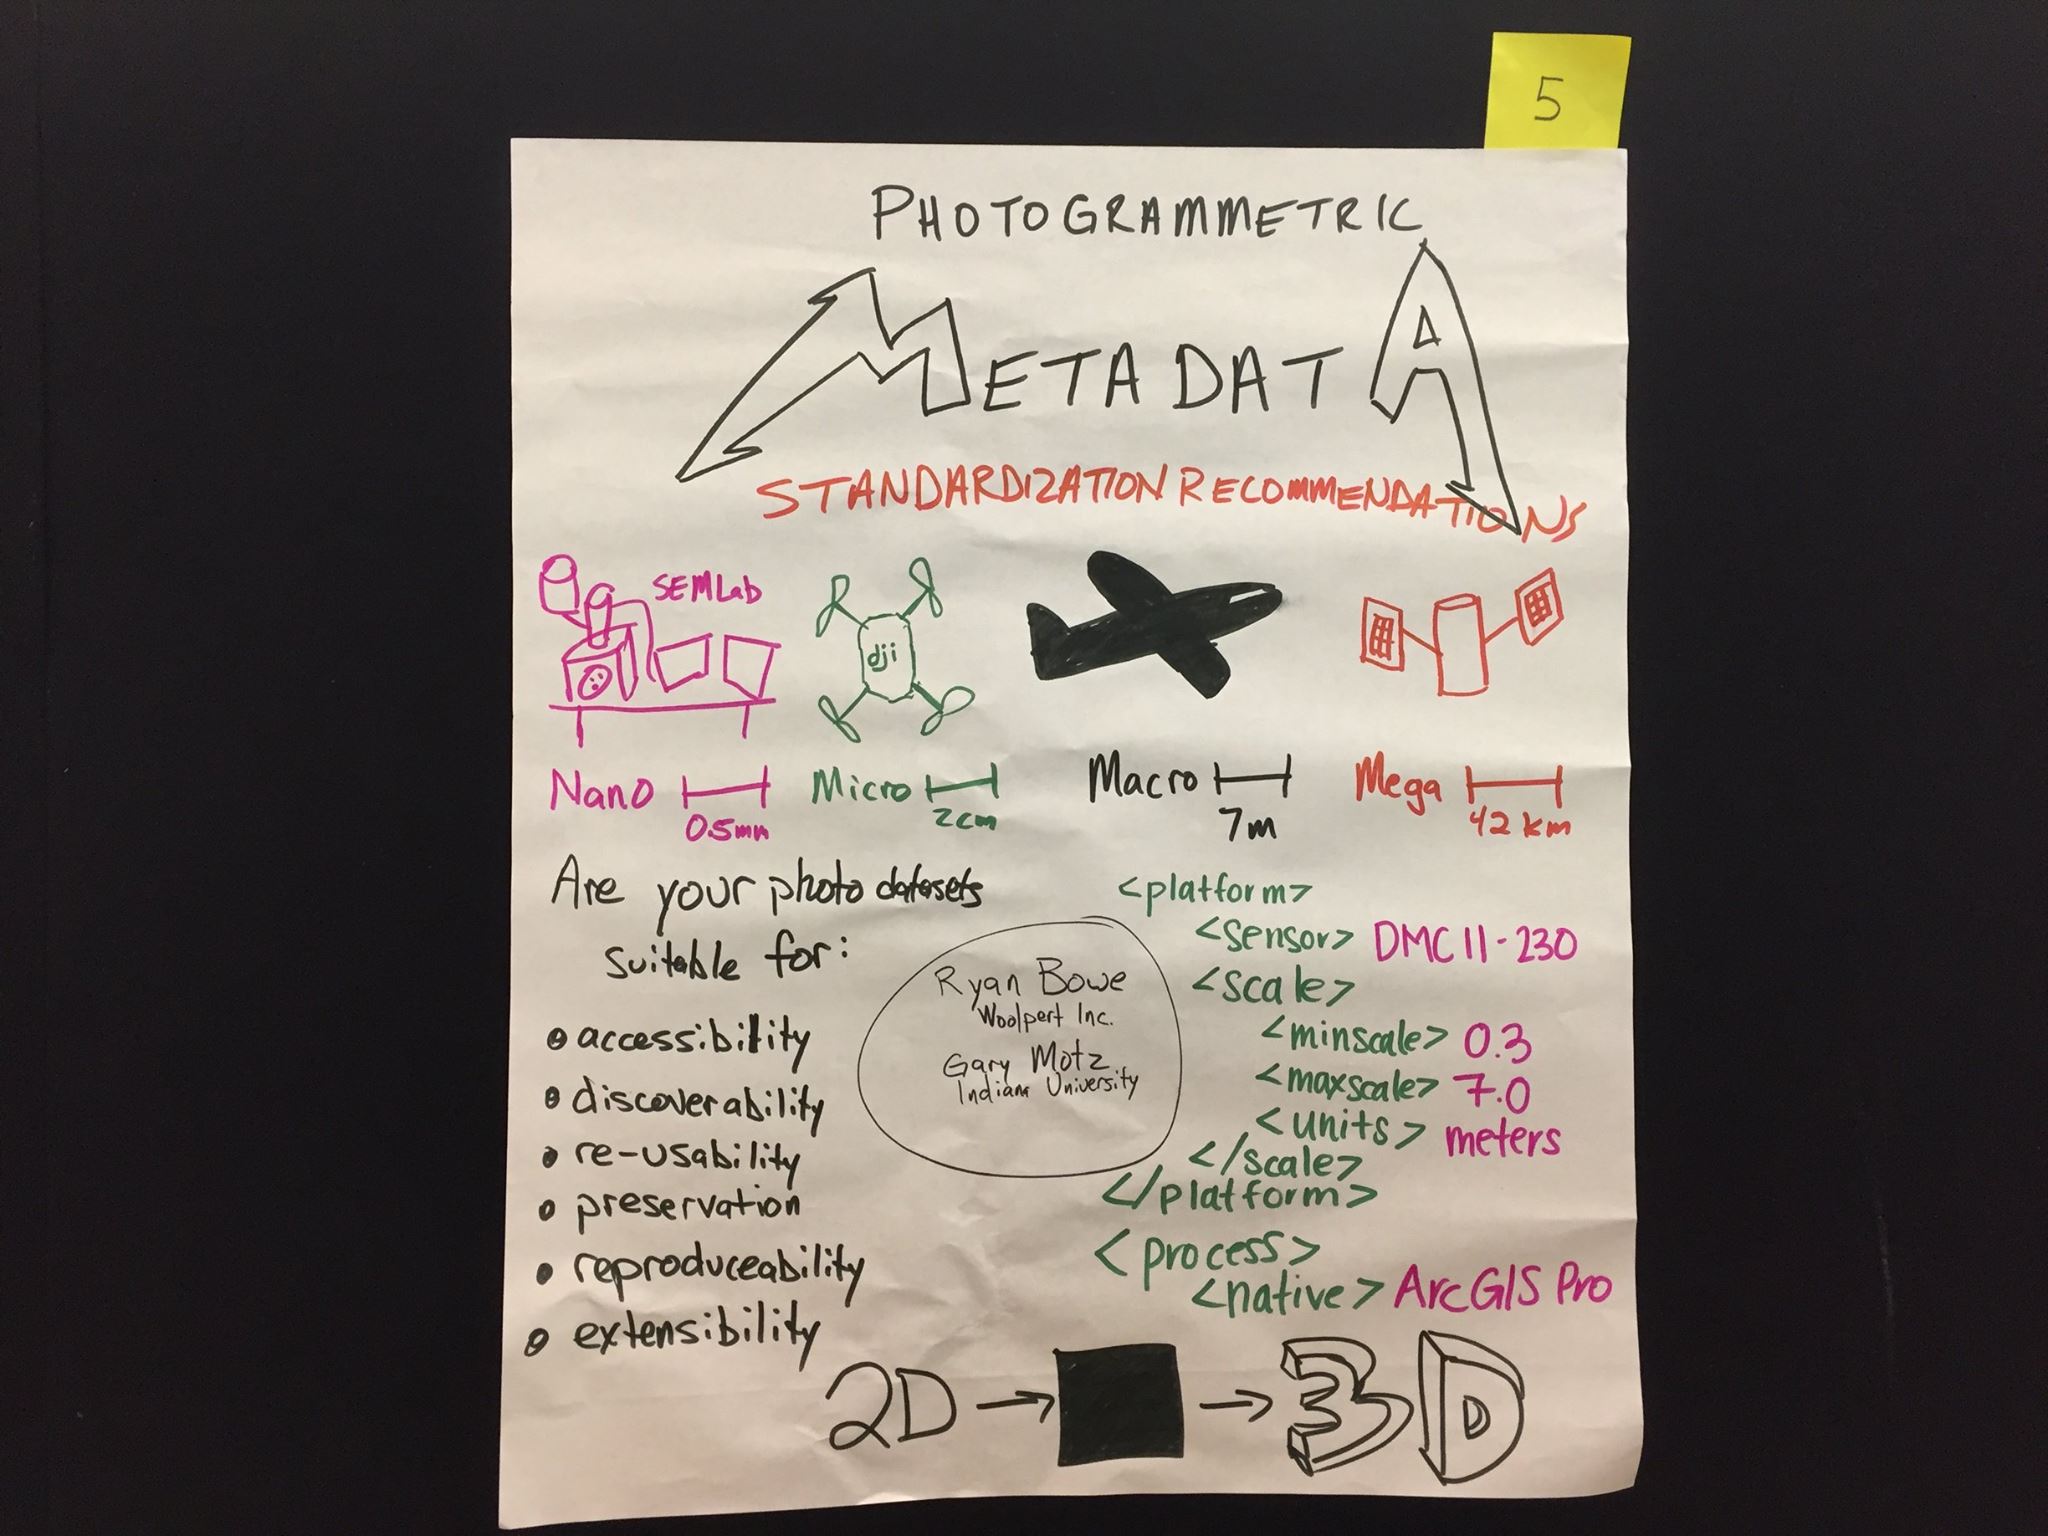 5
PHOTOGRAMMETRIC
METADATA
STANDARDIZATION RECOMMENDATIONS
SEMLab
dji
Nano
0.5mm
Micro
2cm
Macro
7m
Mega
42 km
Are your photo datasets
suitable for:
accessibility
discoverability
re-usability
preservation
reproduceability
extensibility
Ryan Bowe
Woolpert Inc.
Gary Motz
Indiana University
<platform>
<sensor> DMC II-230
<scale>
<minscale> 0.3
<maxscale> 7.0
<units> meters
</scale>
</platform>
<process>
<native> ArcGIS Pro
2D → → 3D